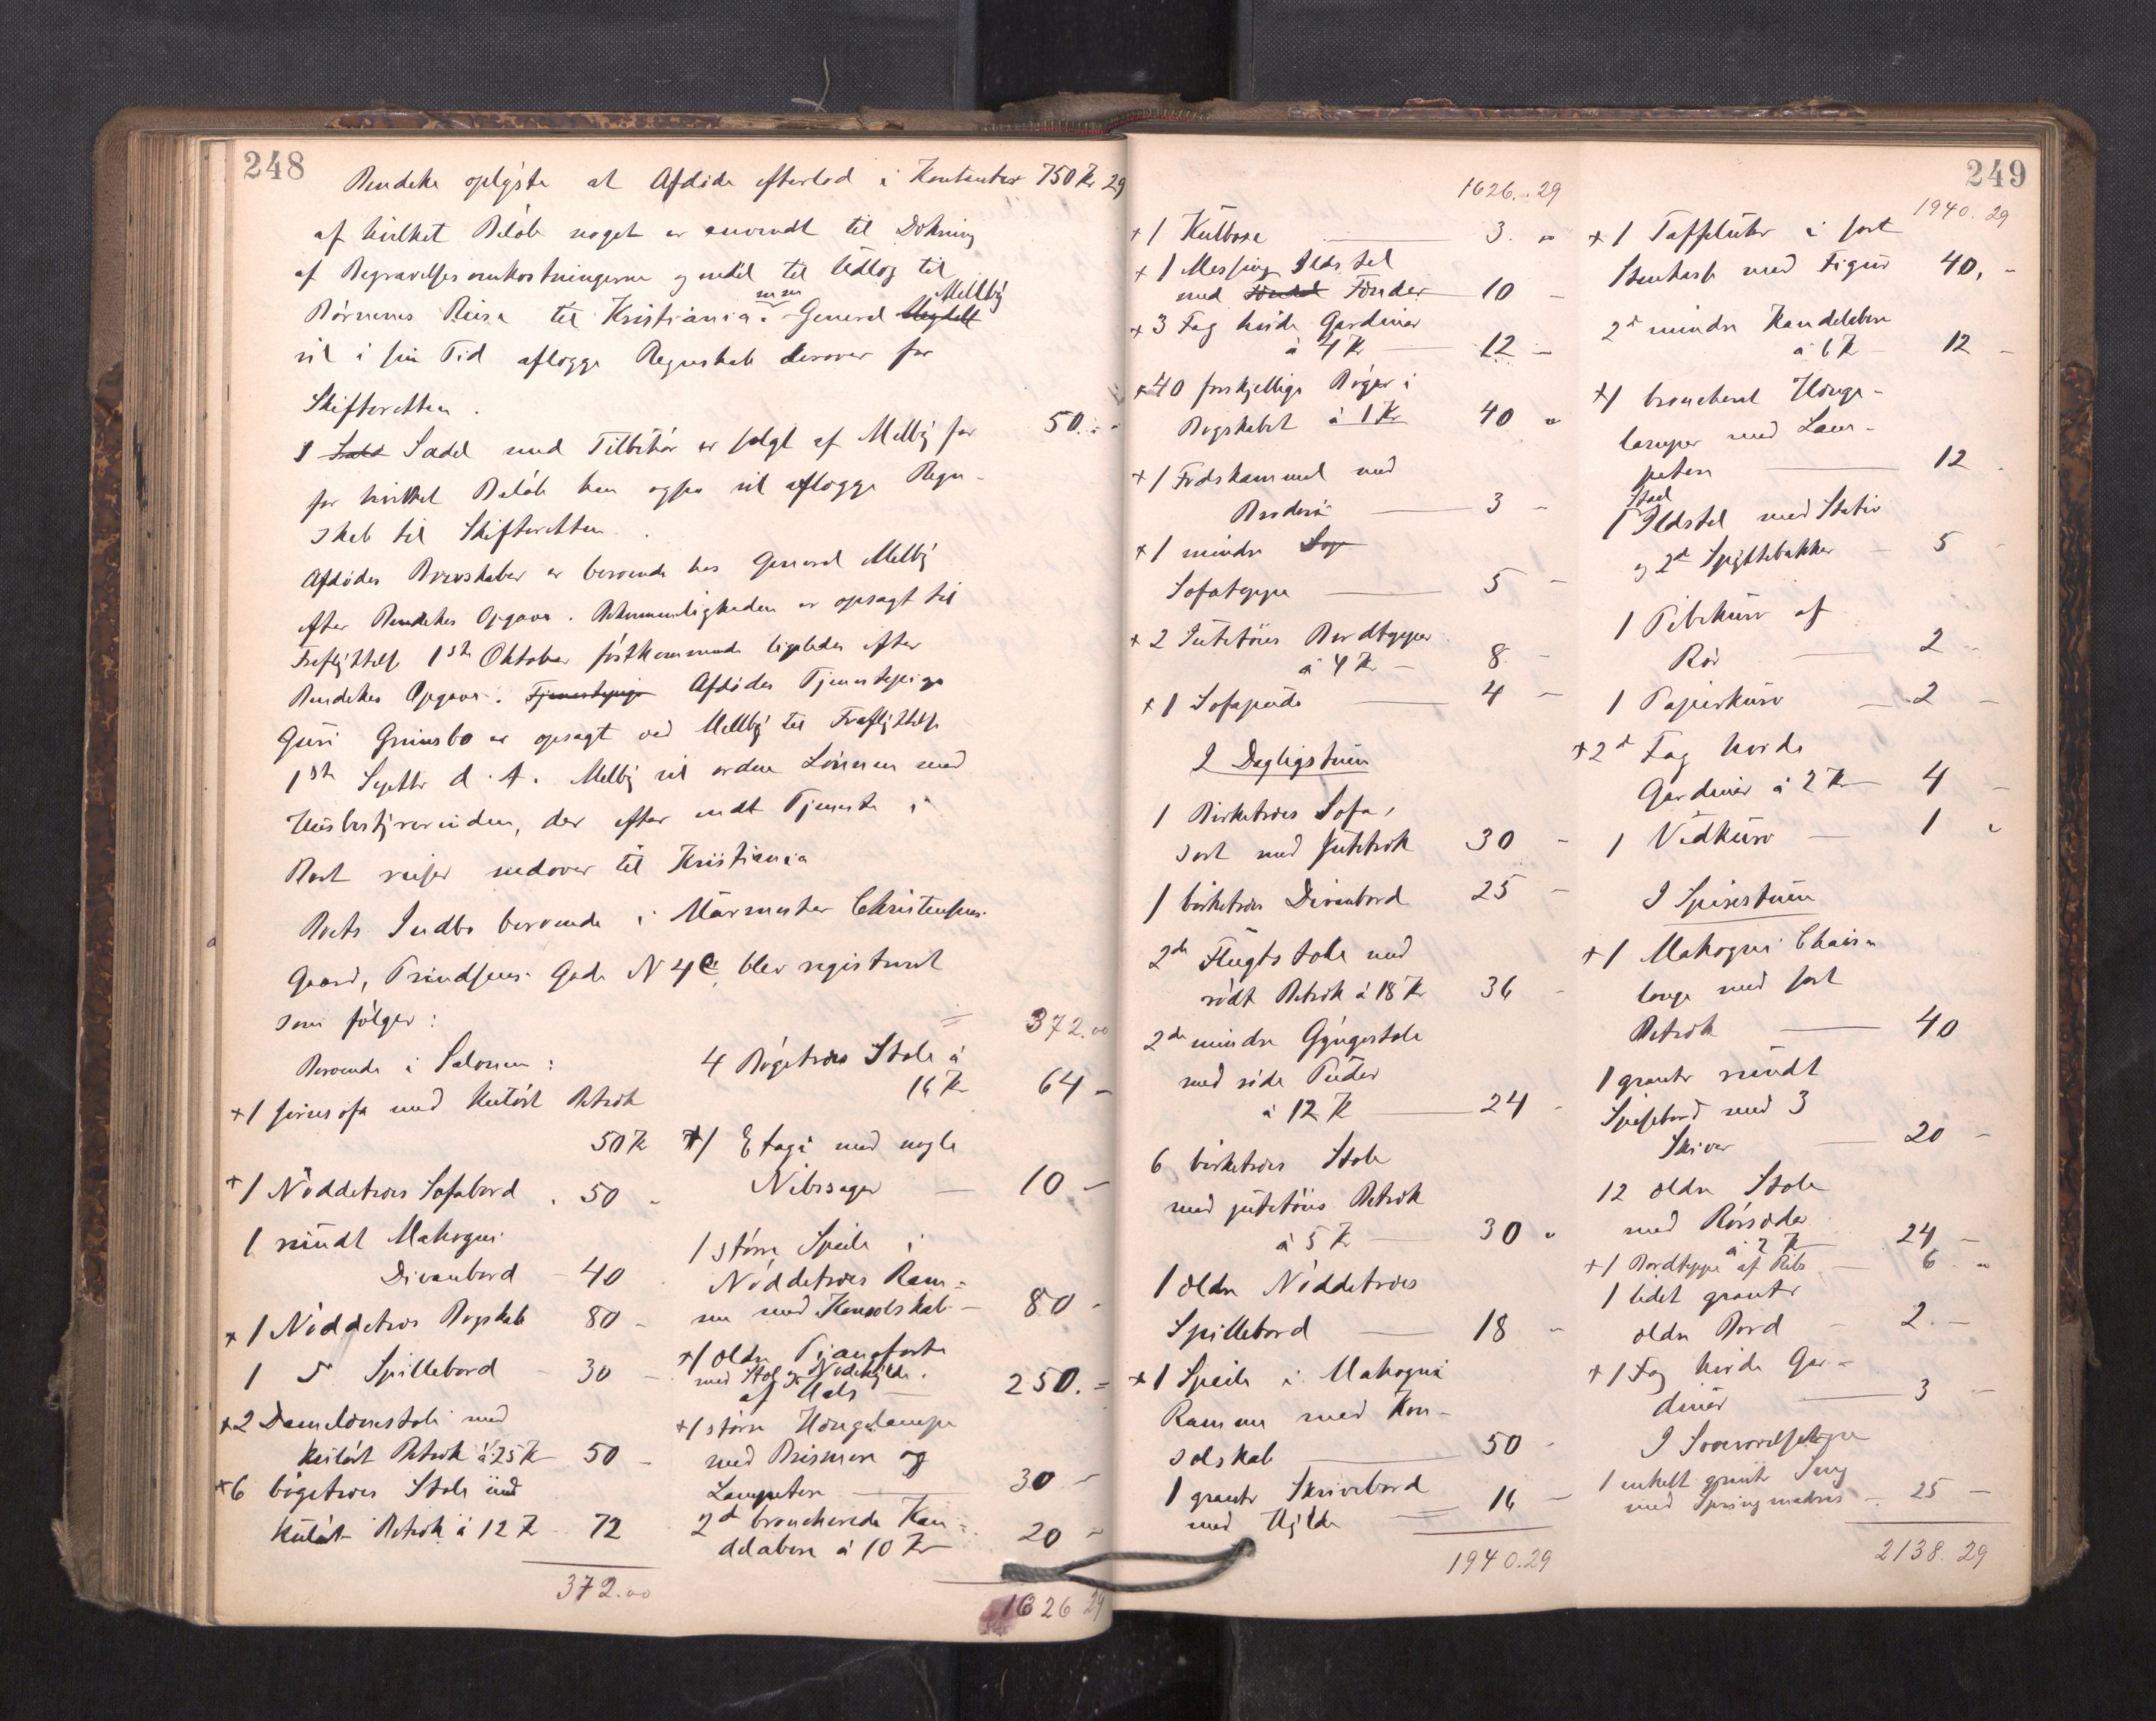 248
Bendeke oplyste at Afdøde efterlod i Kontanter 750 Kr 29
af hvilket Beløb noget er anvendt til Dækning
af Begravelsesomkostningerne og endel til Udlæg til
Børnenes Reise til Kristiania m m. General Mellbÿ
vil i sin Tid aflægge Regnskab derover for
Skifteretten.
1 Sadel med Tilbehør er solgt af Melbÿ for 50. -
for hvilket Beløb han ogsaa vil aflægge Regn-
skab til Skifteretten.
Afdødes Brevskaber er beroende hos General Melbÿ
efter Bendekes Opgave. Bekvemmeligheden er opsagt til
Fraflyttelse 1ste Oktober førstkommende ligeledes efter
Bendekes Opgave. Tjenestepige Afdødes Tjenestepige
Guri Grimsbo er opsagt ved Mellbÿ til Fraflyttelse
1ste Septbr d. A. Melbÿ vil ordne Lønnen med
Husbestyrerinden, der efter endt Tjeneste i
Boet reiser nedover til Kristiania
Boets Indbo beroende i Murmester Christensens
Gaard, Prindsens Gade N 4 C, blev registreret
som følger:
Beroende i Salonen:
+1 hjørnesofa med kulørt Betræk
50 Kr
+1 Nøddetræes Sofabord . 50 -
1 rundt Mahogni
Divanbord - 40
+1 Nøddetræs Bogskab 80 -
1 " Spillebord - 30 -
+2 Damelænestole med
kulørt Betræk á 25 Kr 50 -
+6 bøgetræes Stole med
kulørt Betræk á 12 Kr 72
372.00
= 372.00
4 Bøgetræes Stole á
16 Kr 64 -
+1 Etagé med nogle
Nibssager - 10 -
1 større Speile i
Nøddetræes Ram-
me med Konsolskab - 80 -
+1 ældre Pianoforte
med Stol og Nodehylde.
af Hals - 250. =
+1 større Hængelampe
med Prismer og
Lampetere 30 -
2de broncherede Kan-
delabere á 10 Kr 20 -
1626 29
249
1626.. 29
+1 Kulboxe 3. "
+1 Messing Ildstel
med Fender 10 -
+3 Fag hvide Gardiner
á 4 Kr 12 -
+40 forskjellige Bøger i
Bogskabet á 1 Kr 40 "
+1 Fodskammel med
Broderi 3 -
+1 mindre
Sofateppe 5 -
+2 Jutetøies Bordtepper
á 4 Kr - 8. -
+1 Sofapude 4 -
I Dagligstuen
1 Birketræes Sofa,
sort med Jutetræk 30 -
1 birketræes Divanbord 25 -
2de Flugtstole med
rødt Betræk á 18 Kr 36 -
2de mindre Gyngestole
med røde Puder
á 12 Kr 24 -
6 birketræes Stole
med jutetøies Betræk
á 5 Kr 30 "
1 ældre Nøddetræes
Spillebord 18 -
+1 Speile i Mahogni
Ramme med Kon-
solskab 50 -
1 grante Skrivebord
med Hylde 16 -
1940.29
1940. 29
+1 Taffeluhr i sort
Stenkasse med Figur 40, -
2de mindre Kandelabere
á 6 Kr - 12 -
+1 broncheret Hænge-
lampe med Lam-
peter 12 .
Staal
1 Ildstel med Stativ
og 2de Spyttebakker - 5 -
1 Pibekurv af
Rør 2 -
1 Papirkurv 2 -
+2de Fag hvide
Gardiner á 2 Kr 4 -
1 Vedkurv 1 "
I Spisestuen
+1 Mahogni Chaise
longe med sort
Betræk 40
1 grante rundt
Spisebord med 3
Skiver 20 -
12 ældre Stole
med Rørsæder
á 2 Kr 24 -
+1 Bordteppe af Ribs 6. "
1 lidet grante
ældre Bord 2. -
+1 Fag hvide Gar-
diner 3 -
I Soveværelset oppe
1 enkelt grante Seng
med Springmadras 25 -
2138. 29